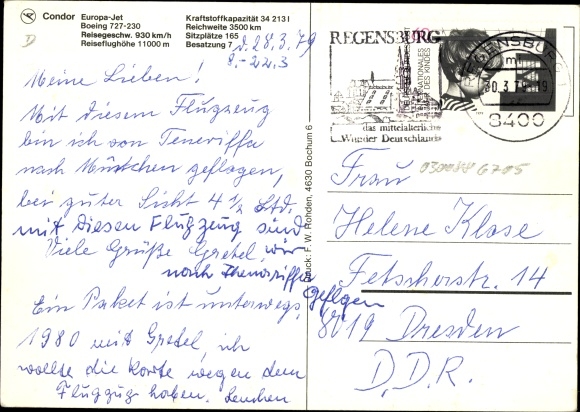 Condor Europa-Jet
Boeing 727-230
Reisegeschw. 930 km/h
Reiseflughöhe 11000 m
Kraftstoffkapazität 34 213 l
Reichweite 3500 km
Sitzplätze 165
Besatzung 7
d. 28.3.79
9.-22.3
Meine Lieben!
Mit diesem Flugzeug
bin ich von Teneriffa
nach München geflogen,
bei guter Sicht 4 1/2 Std.
mit diesen Flugzeug sind
Viele Grüße Gretel, wir
nach
geflogen
Ein Paket ist unterwegs,
1980 mit Gretel, ich
wollte die Karte wegen dem
Flugzug haben. Lenchen
Druck: F. W. Rohden, 4630 Bochum 6
REGENSBURG
INTERNATIONALES
JAHR DES KINDES
das mittelalterliche
Wunder Deutschlands
REGENSBURG 1
mu
30.3.79-19
8400
Frau
Helene Klose
Fetscherstr. 14
8019 Dresden
D.D.R.